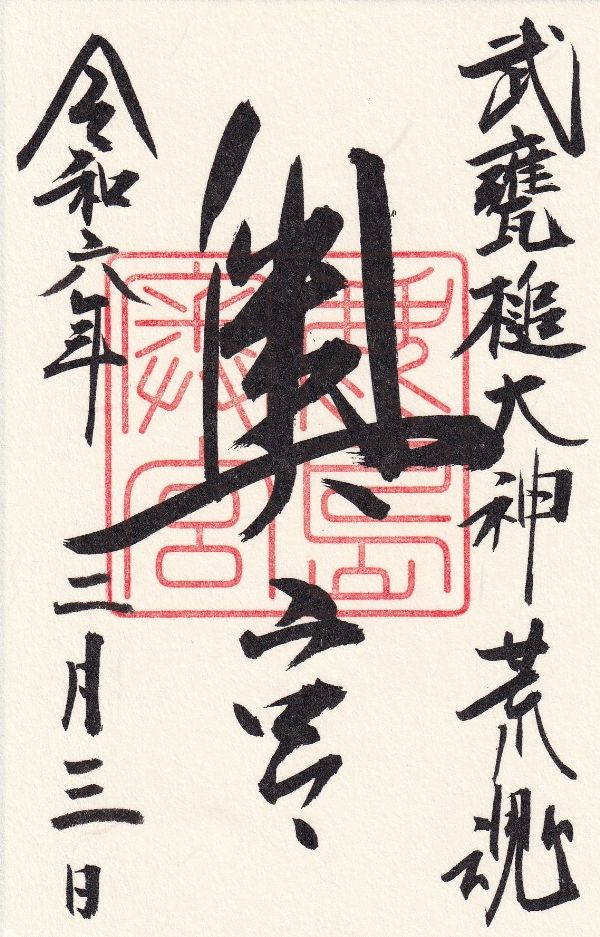 武甕槌大神荒魂
奥宮
鹿島奥宮
令和六年二月三日